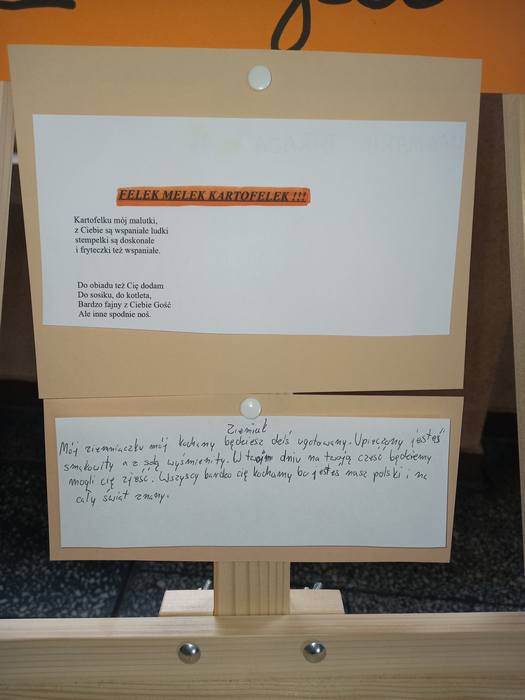 FELEK MELEK KARTOFELEK !!!
Kartofelku mój malutki,
z Ciebie są wspaniałe ludki
stempelki są doskonałe
i fryteczki też wspaniałe.
Do obiadu też Cię dodam
Do sosiku, do kotleta,
Bardzo fajny z Ciebie Gość
Ale inne spodnie noś.
Ziemiak
Mój ziemniaczku mój kochany będziesz dziś ugotowany. Upieczony jesteś
smakowity a z solą wyśmienity. W twoim dniu na twoją cześć będziemy
mogli cię zjeść. Wszyscy bardzo cię kochamy bo jesteś nasz polski i na
cały świat znany.